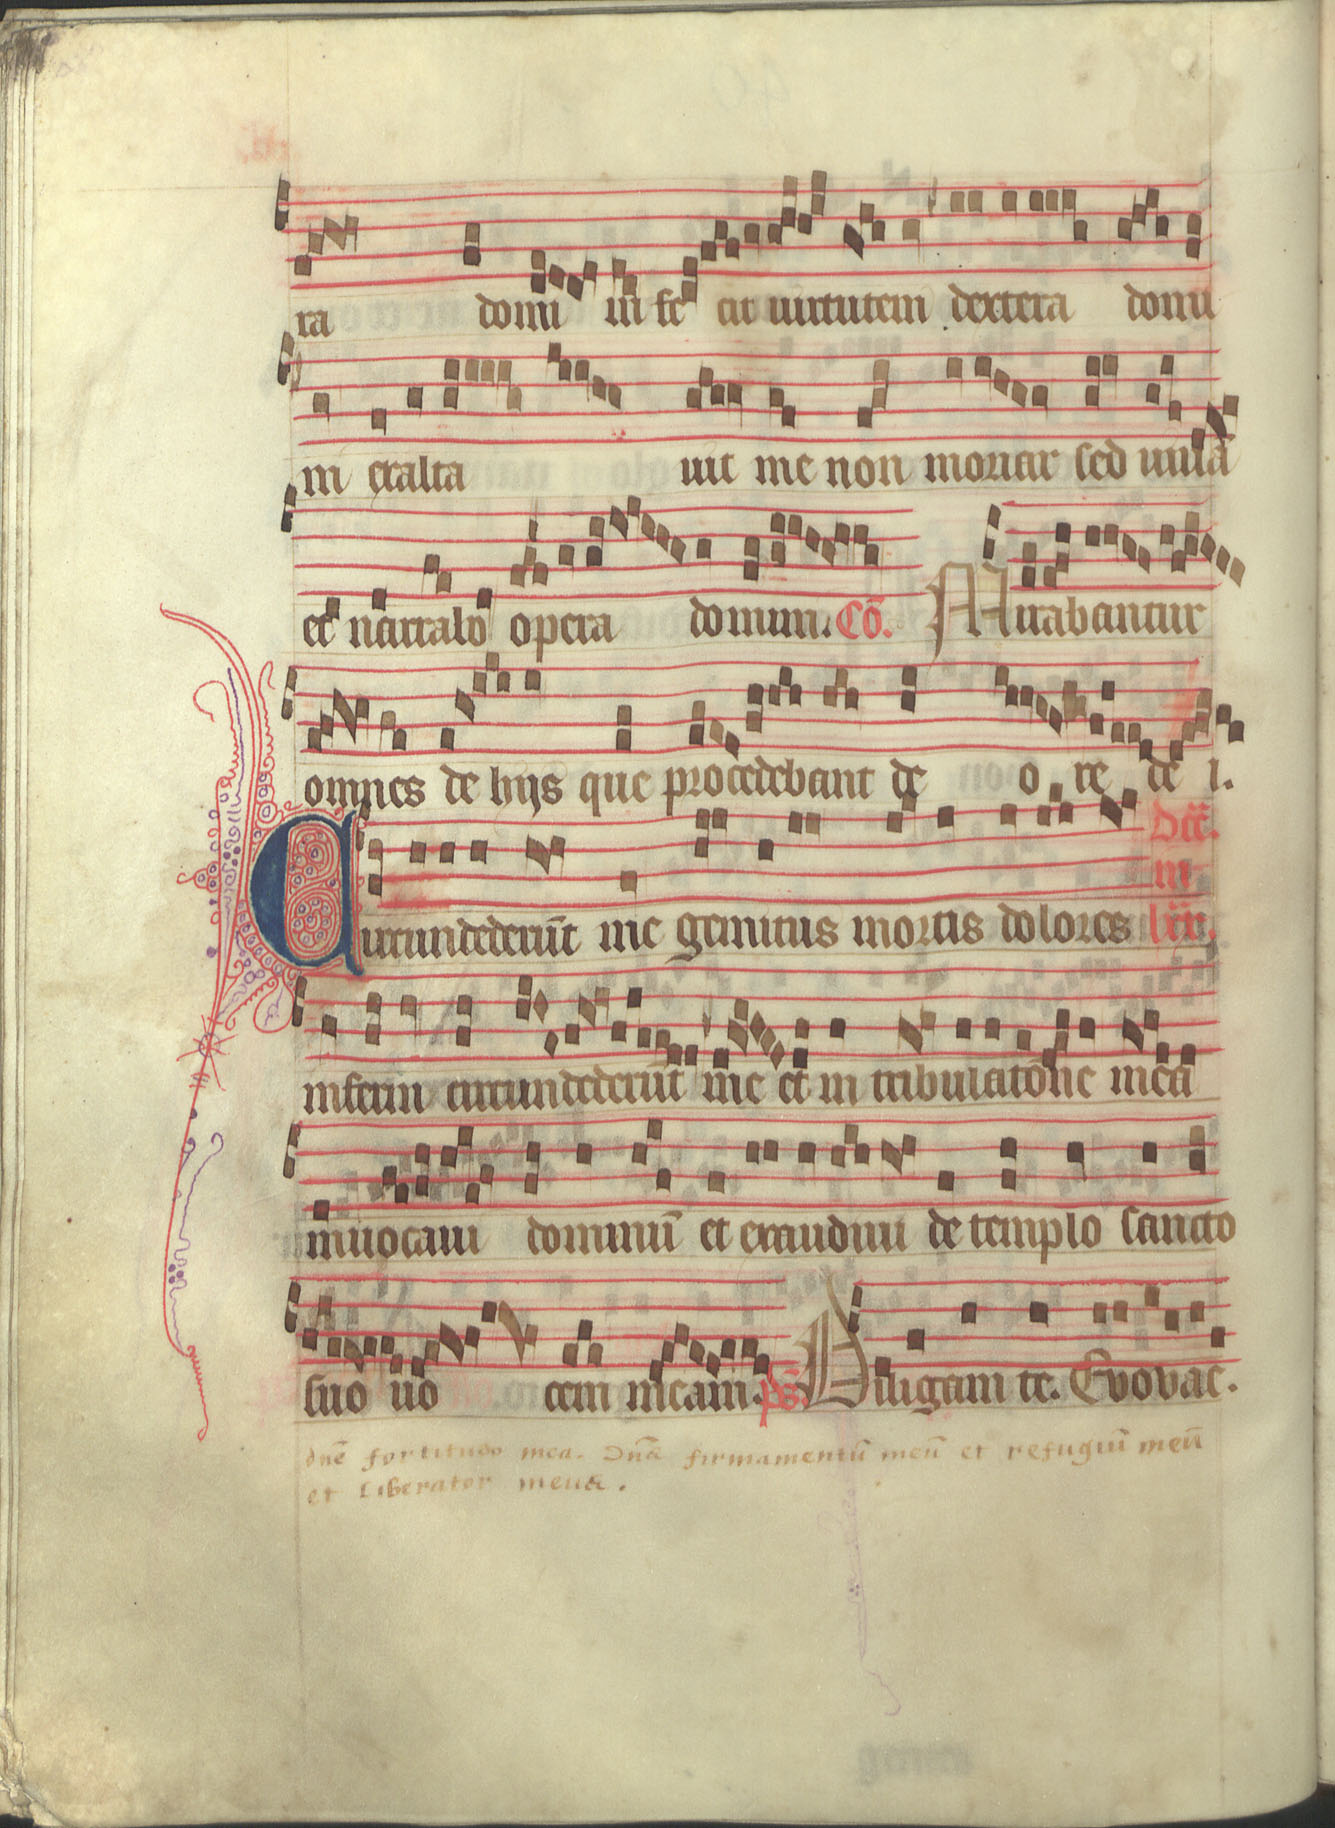 ra domi ni fe cit uirtutem dextera domi
ni exalta uit me non moriar sed uiuā
et narrabo opera domini. Cō. Mirabantur
omnes de hijs que procedebant de o re de i.
Circundederūt me gemitus mortis dolores lxx.
inferni circundederūt me et in tribulatōne mea
inuocaui dominū et exaudiuit de templo sancto
suo uo cem meam. ps. Diligam te. Evovae.
dnē fortitudo mea. Dn̄s firmamentū meū et refugiū meū
et liberator meus.